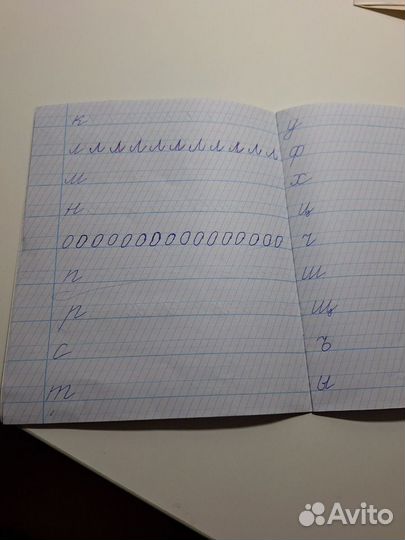 к
л л л л л л л л л л л
м
н
о о о о о о о о о о о о о о о о
п
р
с
т
у
ф
х
ц
ч
ш
щ
ъ
ы
Avito